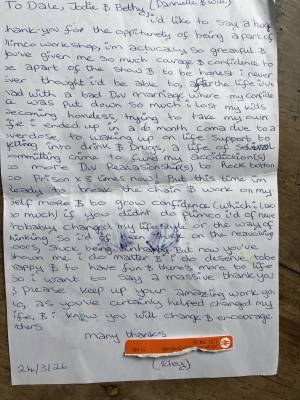 To Dale, Jodie & Bethy (Danielle & Will)
I'd like to say a huge
thank-you for the oppitunety of being apart of
Plimco workshop, i'm actucally so greatful &
you've given me so much courage & confidence to
be apart of the show & to be honest i never
ever thought i'd be able to, after the life i've
had with a bad Div marriage where my confide
& was put down so much i lost my kids
becoming homeless, trying to take my own
life & ended up in a 10 month coma due to a
overdose to waking up on life support to
getting into drink & Drugs, a life of several
committing crime to fund my accidiction(s)
to more Div Realashonship(s) to Rock bottom
so Prison (8 times now) But this time i'm
ready to break the chain & work on my
self more & to grow confidence (which i lac
so much) if you didnt plimco i'd of neve
probably changed my lifestyle or the way of
thinking so i'd of on the reacuiring
doors & be being runnable. But now you've
shown me i do matter & i do deserve to be
happy & to have fun & there's more to life
so i want to say a massive thank you
& please keep up your amazing work you
do, as you've certainly helped changed my
life, & i know you will change & encourage
others
many thanks
(Eley)
24/3/26